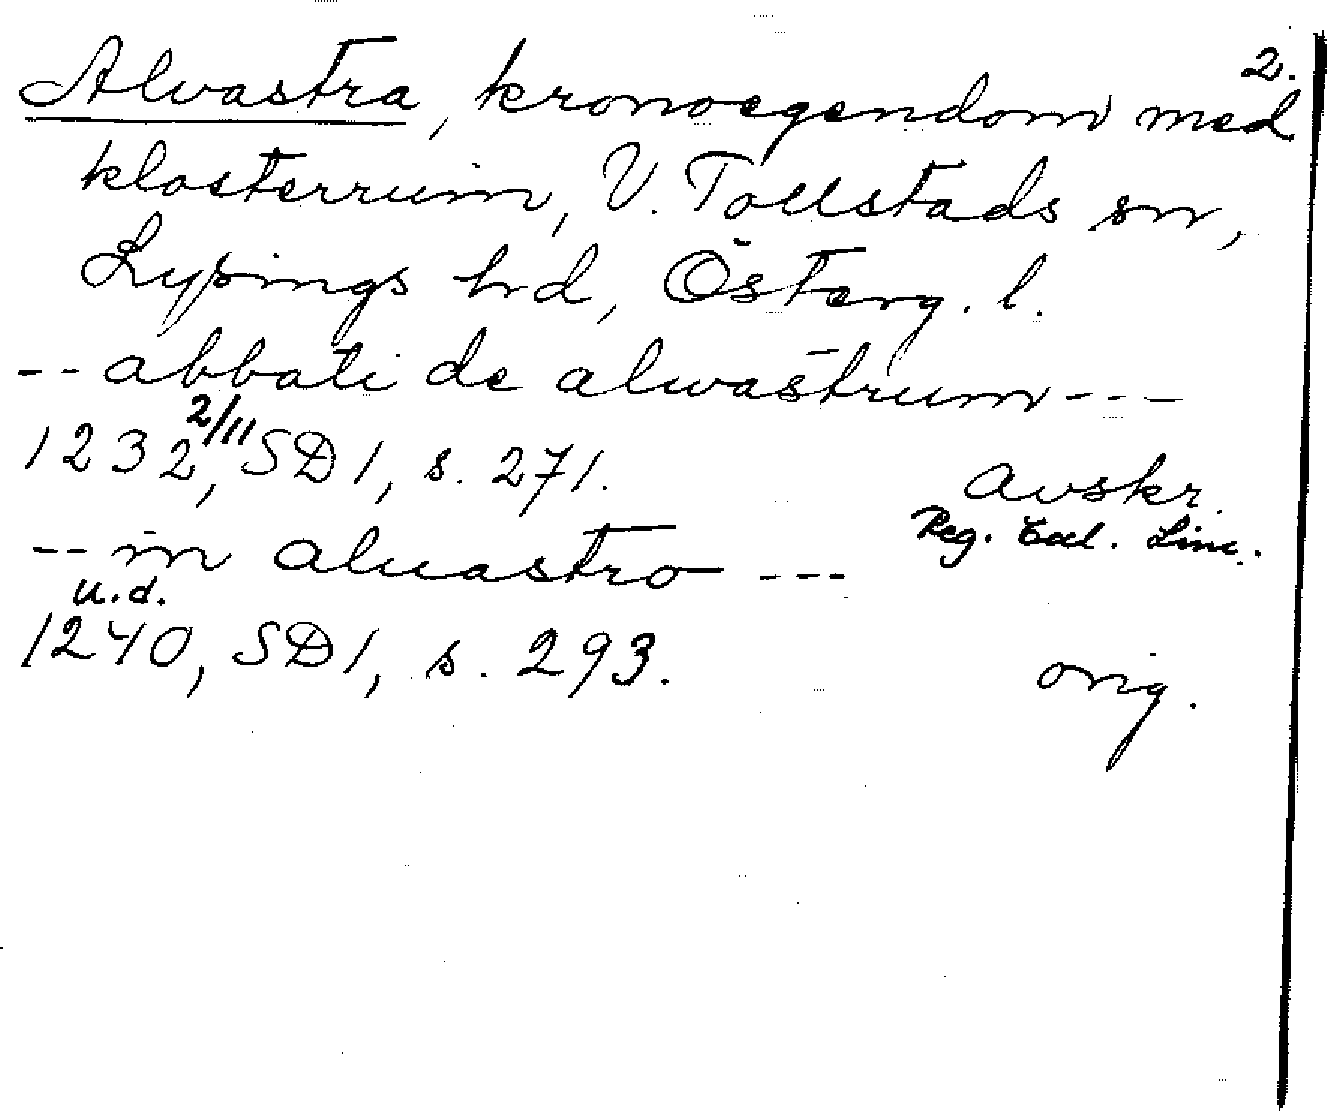 2.
Alvastra, kronoegendom med
klosterruin, V. Tollstads sn,
Lysings hd, Österg. l.
-- abbati de alwastrum ---
1232 2/11, SD 1, s. 271. Avskr.
Reg. Eccl. Linc.
-- in aluastro ---
u.d.
1240, SD 1, s. 293. orig.